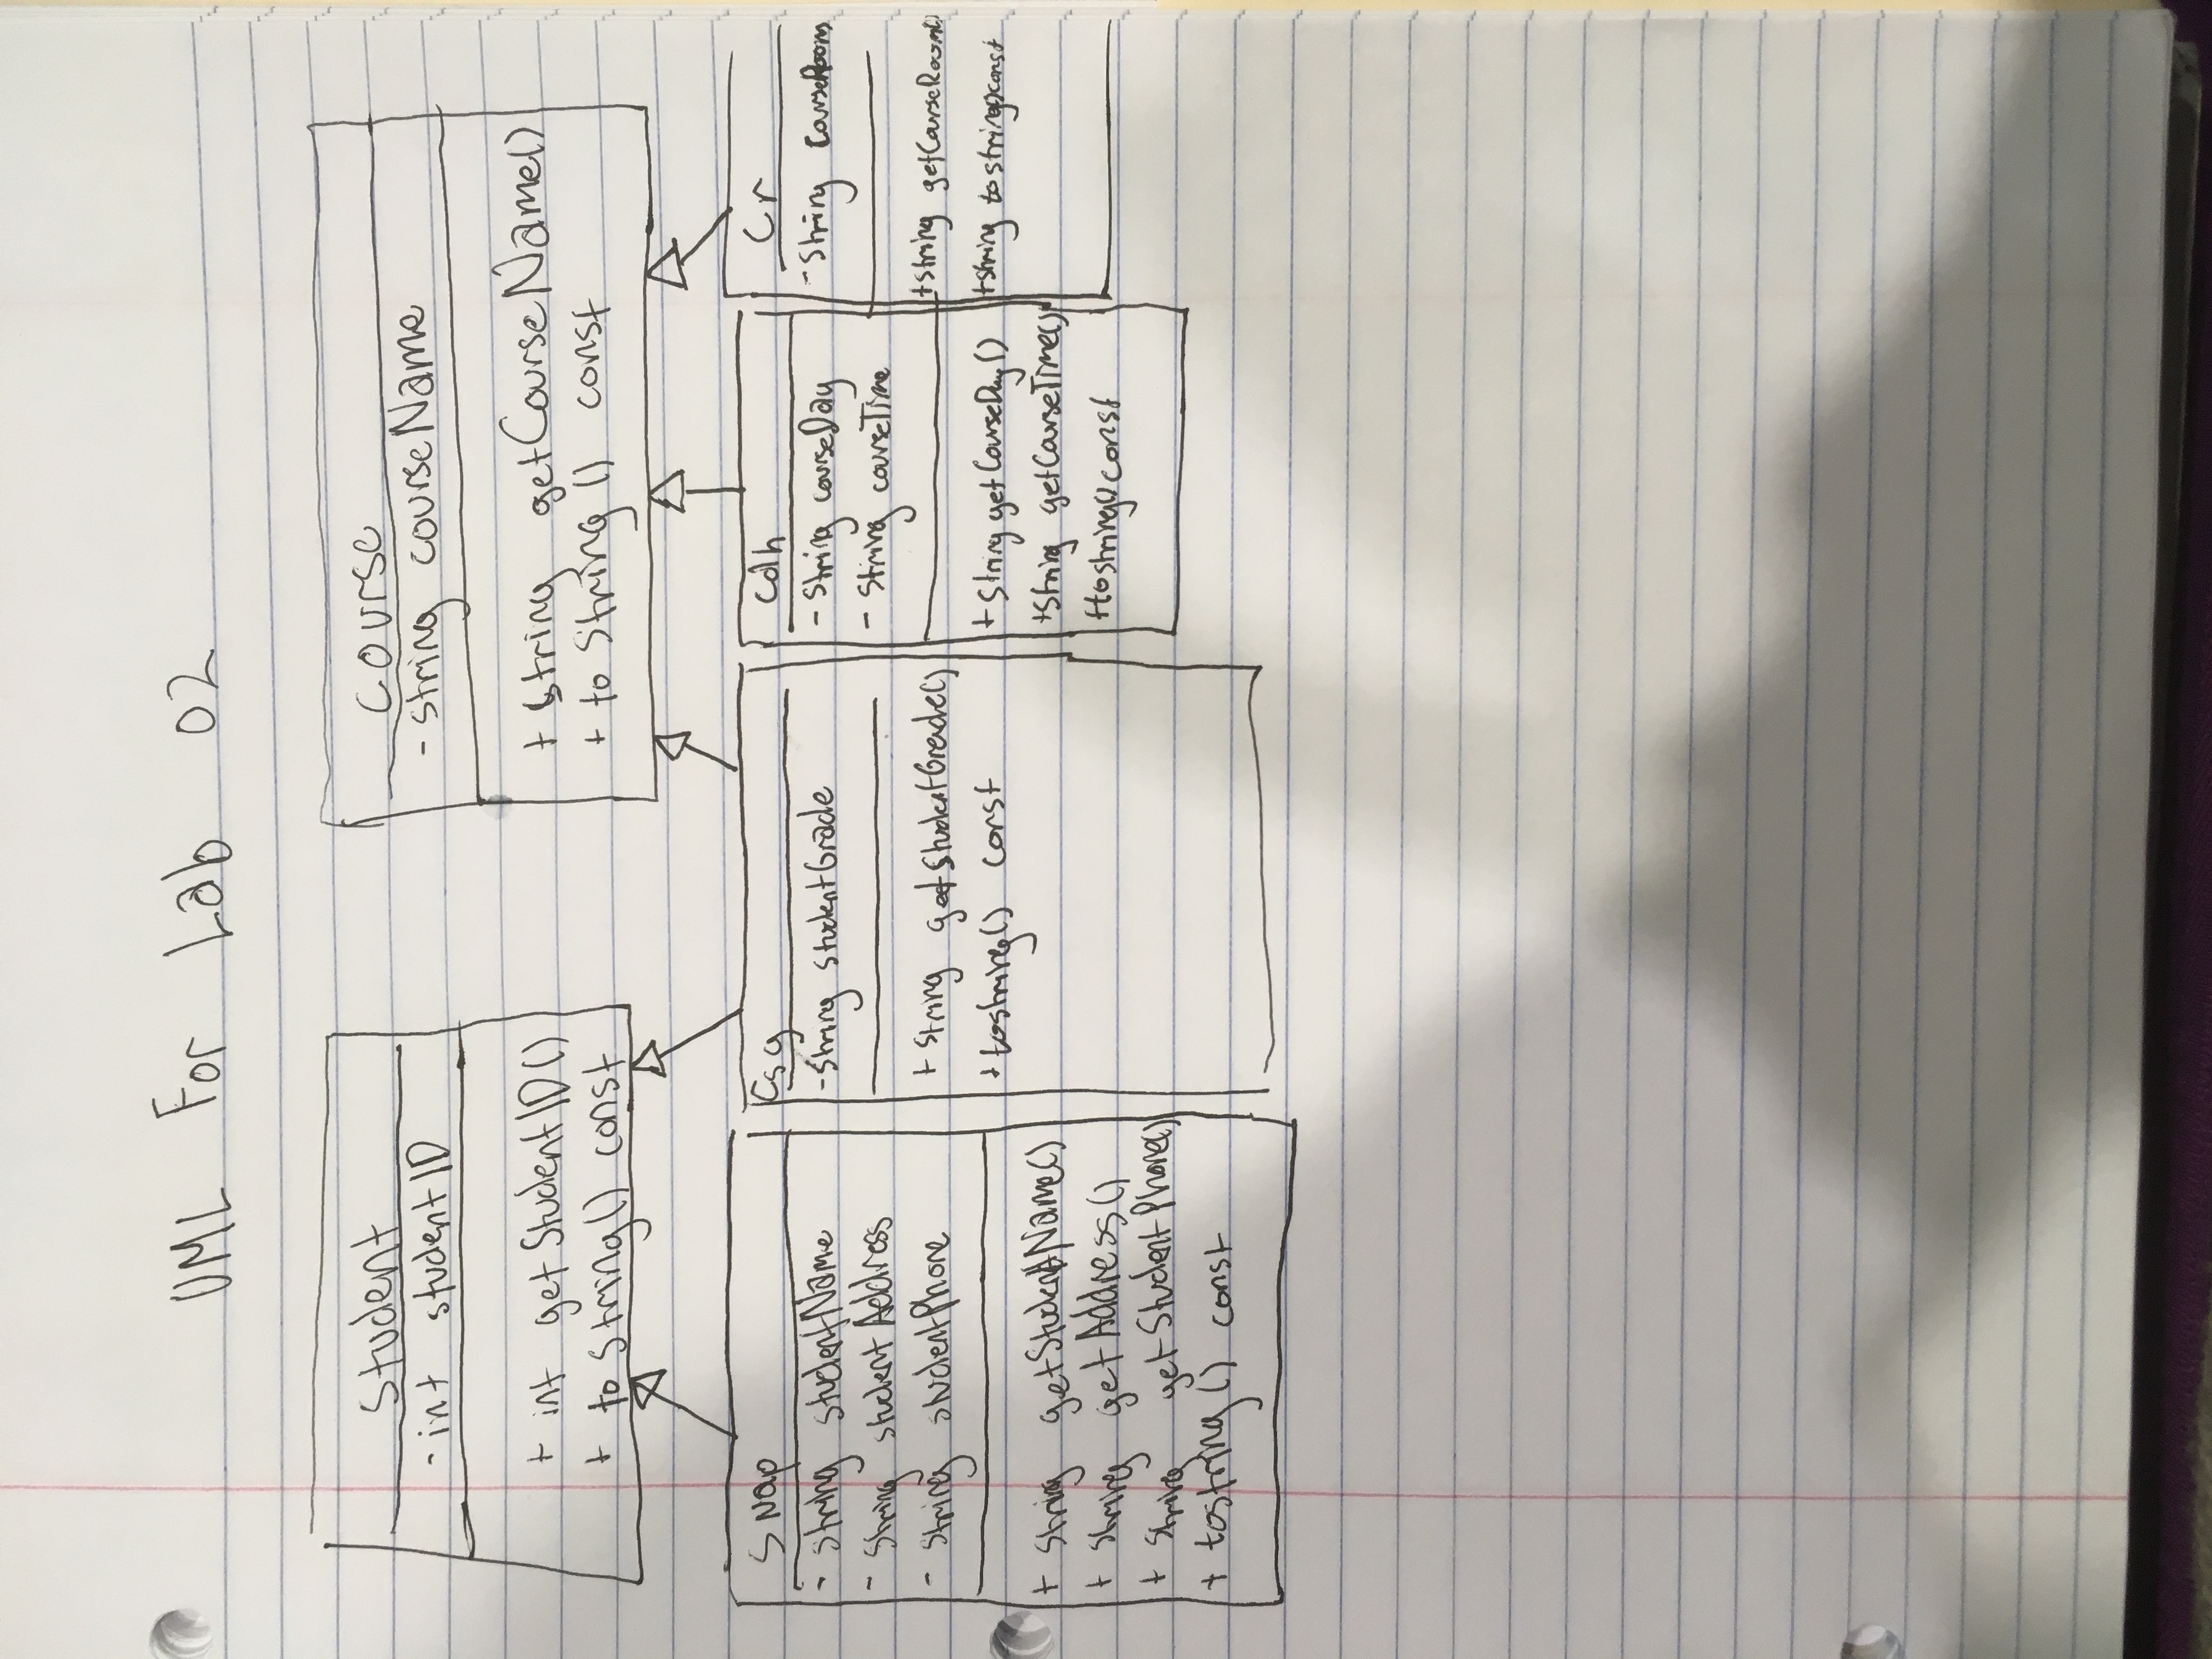 UML For Lab 02
Student
- int studentID
+ int getStudentID()
+ toString() const
Course
- string courseName
+ string getCourseName()
+ toString() const
Snap
- String studentName
- String studentAddress
- String studentPhone
+ String getStudentName()
+ String getAddress()
+ String getStudentPhone()
+ tostring() const
Csg
- String studentGrade
+ String getStudentGrade()
+ tostring() const
Cdh
- String courseDay
- String courseTime
+ String getCourseDay()
+ String getCourseTime()
+ tostring() const
Cr
- String CourseRoom
+ string getCourseRoom()
+ string tostring() const